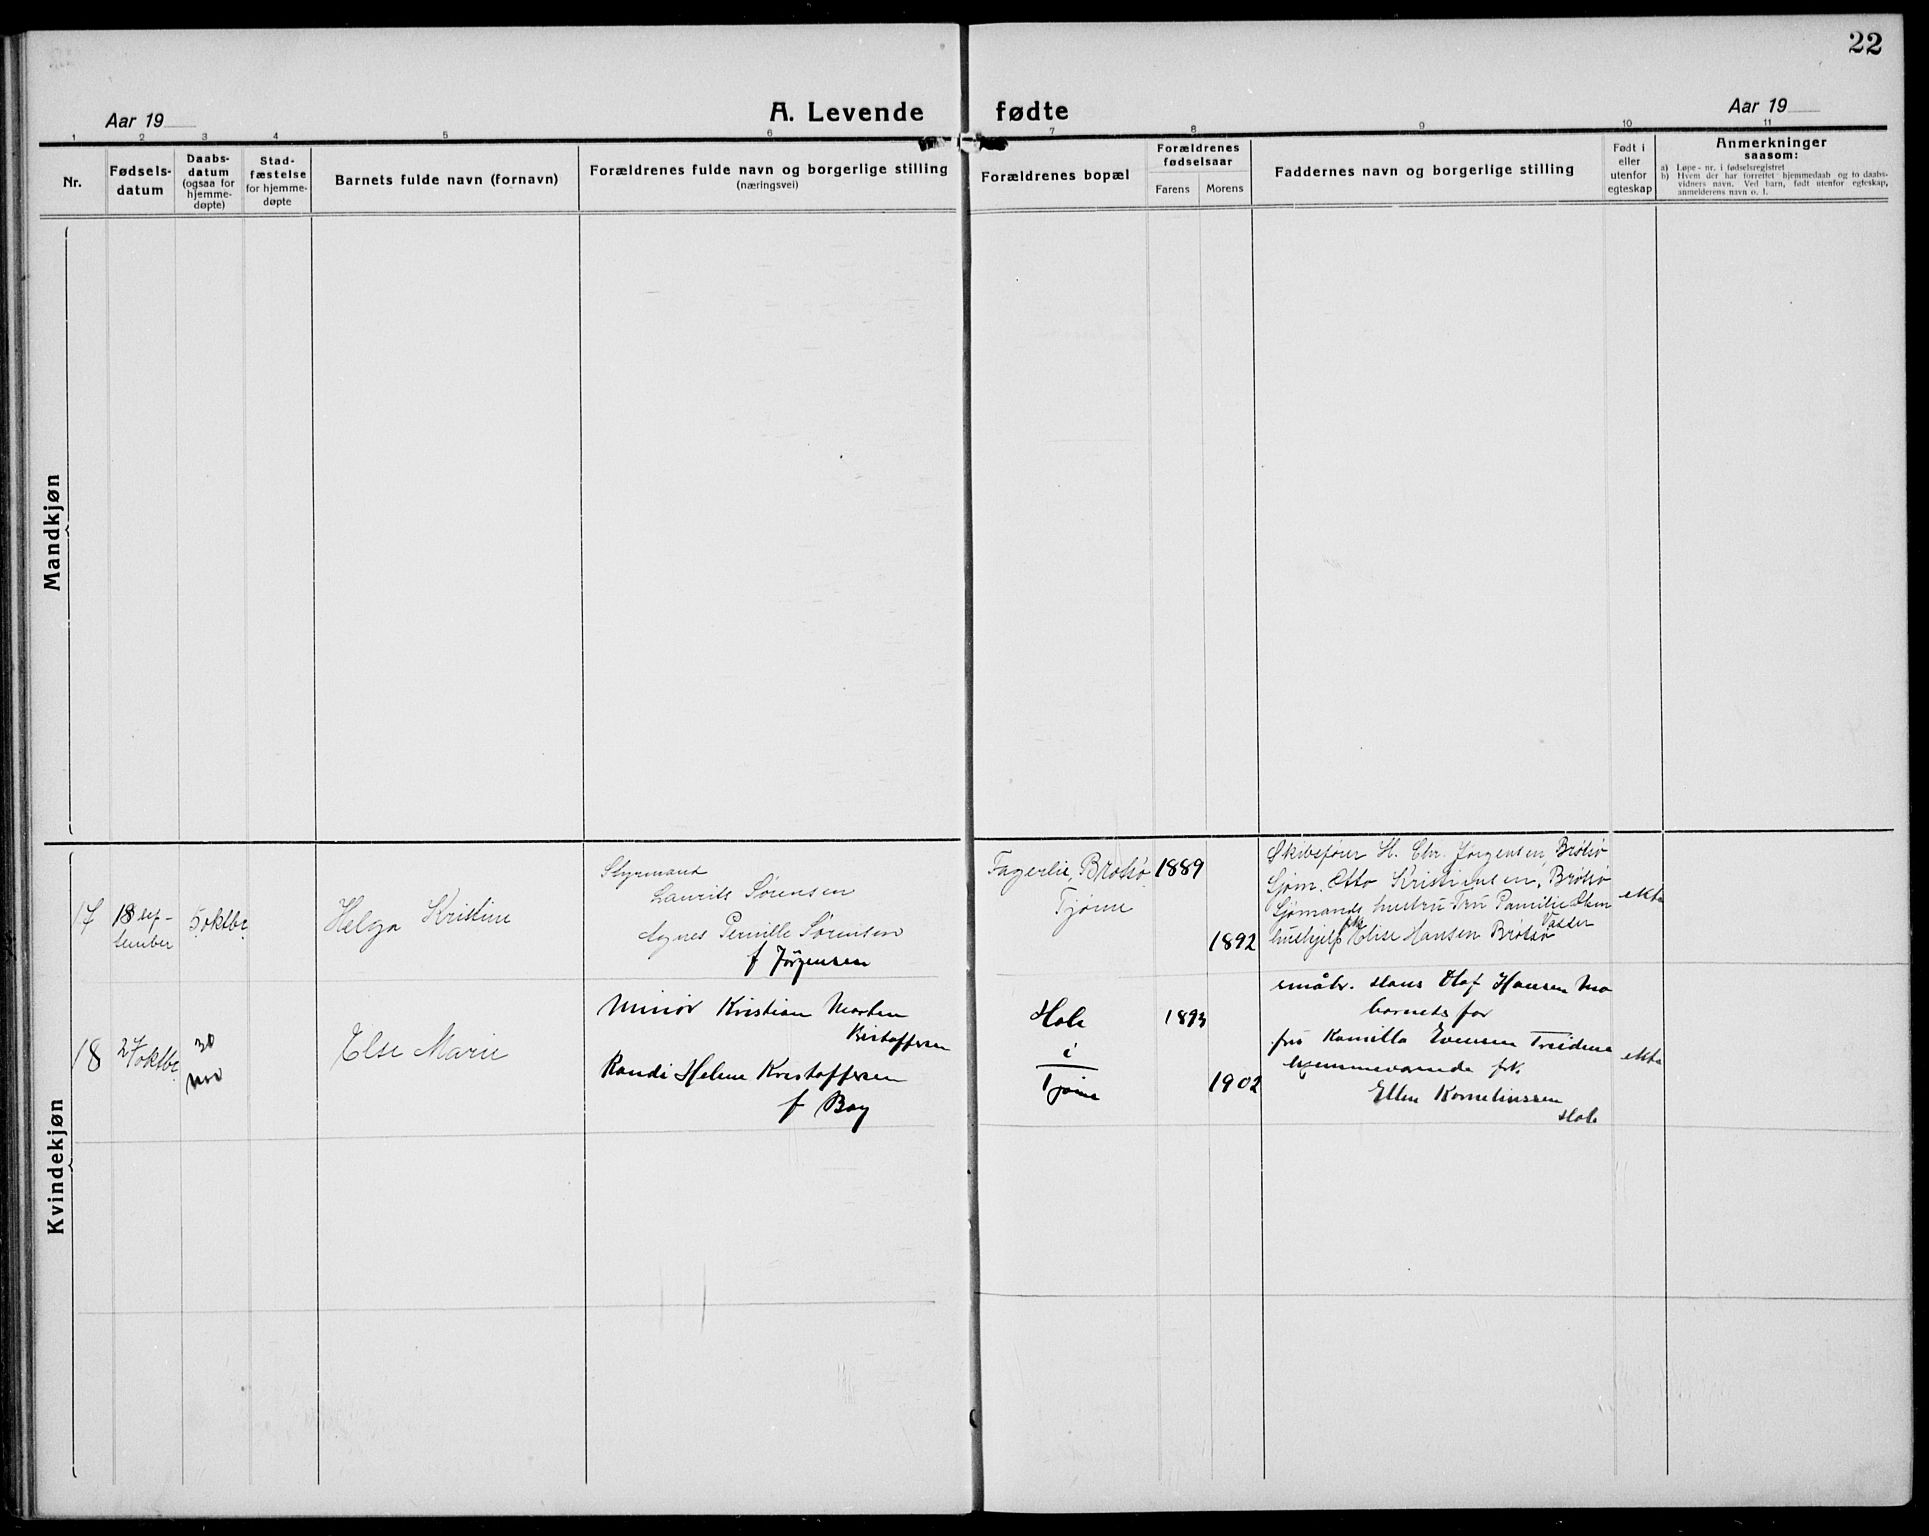 22
Aar 19
A. Levende fødte
Aar 19
1 2 3 4 5 6 7 8 9 10 11
Nr.
Fødsels-
datum
Daabs-
datum
(ogsaa for
hjemme-
døpte)
Stad-
fæstelse
for hjemme-
døpte
Barnets fulde navn (fornavn)
Forældrenes fulde navn og borgerlige stilling
(næringsvei)
Forældrenes bopæl
Forældrenes
fødselsaar
Farens Morens
Faddernes navn og borgerlige stilling
Født i
eller
utenfor
egteskap
Anmerkninger
saasom:
a) Løpe-nr. i fødselsregistret
b) Hvem der har forrettet hjemmedaab og to daabs-
vidners navn. Ved barn, født utenfor egteskap,
anmelderens navn o. l.
Mandkjøn
Kvindekjøn
17
18 sep-
tember
5 oktbr
Helga Kristine
Styrmand
Laurits Sørensen
Agnes Pernille Sørensen
f Jørgensen
Fagerlie, Brøtsø
Tjøme
1889
1892
Skibsfører H. Chr. Jørgensen, Brøtsø
Sjøm. Otto Kristiansen, Brøtsø
Sjømands hustru Fru
hushjelp frk Elise Hansen Brøtsø
ekte
18
27 oktbr
30
nov
Else Marie
Minør Kristian Morten
Kristoffersen
Randi Helene Kristoffersen
f Bay
Hole
i
Tjøme
1893
1902
småbr. Hans Olaf Hansen Mo
barnets far
fru Kamilla Evensen
hjemmeværende frk.
Ellen Kornelinssen
Hole
ekte